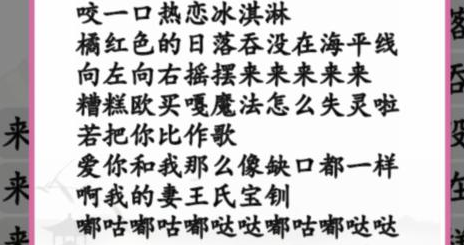 咬一口热恋冰淇淋
橘红色的日落吞没在海平线
向左向右摇摆来来来来来
糟糕欧买嘎魔法怎么失灵啦
若把你比作歌
爱你和我那么像缺口都一样
啊我的妻王氏宝钏
嘟咕嘟咕嘟哒哒嘟咕嘟哒哒
来
来
来
吞
没
在